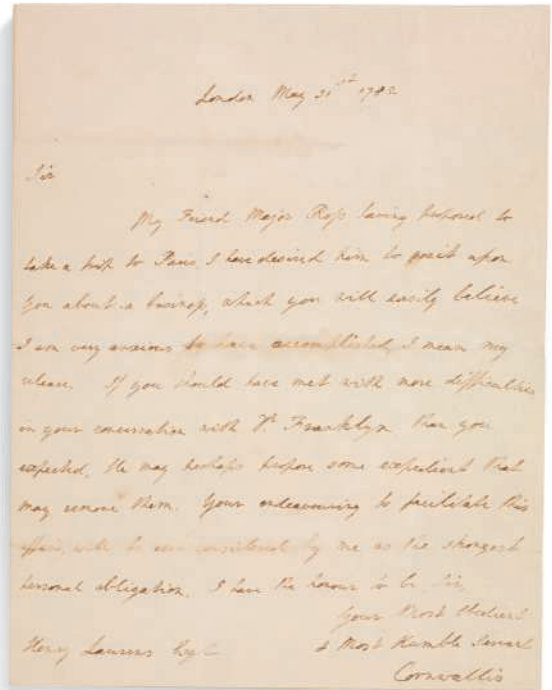 London May 31st 1782
Sir
My Friend Major Ross having proposed to
take a trip to Paris I have desired him to wait upon
you about a business, which you will easily believe
I am very anxious to have accomplished, I mean my
release. If you should have met with more difficulties
in your conversation with Dr. Francklyn than you
expected, He may perhaps propose some expedient that
may remove them. Your endeavouring to facilitate this
affair, will be considered by me as the strongest
personal obligation. I have the honour to be Sir
Your Most Obedient
& Most Humble Servant
Henry Laurens Esqr
Cornwallis